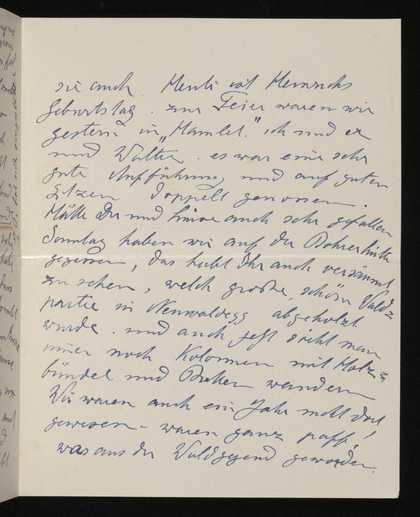 sie auch. Heute ist Heinrichs
Geburtstag. zur Feier waren wir
gestern in „Hamlet." ich und er
und Walter. es war eine sehr
gute Aufführung und auf guten
Sitzen doppelt genossen.
Hätte Dir und auch sehr gefallen
Sonntag haben wir auf der Rohrerhütte
gegessen, das habt Ihr auch versäumt
zu sehen, welch große, schöne Wald=
partie in Neuwaldegg abgeholzt
wurde. und auch jetzt sieht man
immer noch Kolonnen mit Holz=
bündel und Butten wandern
Wir waren auch ein Jahr nicht dort
gewesen - waren ganz paff!
was aus der Waldgegend geworden.